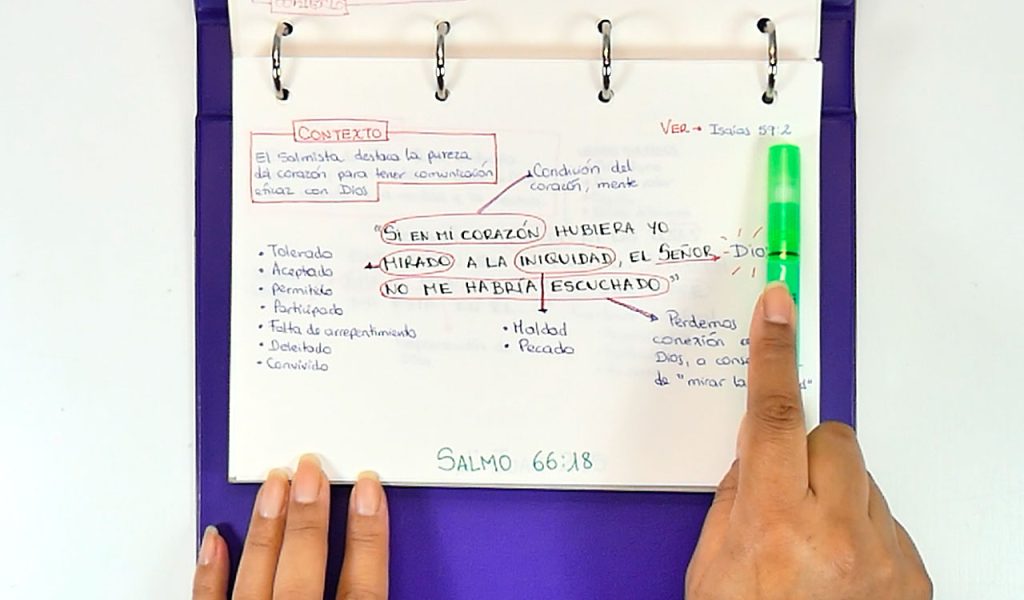 CONTEXTO
El Salmista destaca la pureza
del corazón para tener comunicación
eficaz con Dios
VER → Isaías 59:2
Condición del
corazón, mente
"SI EN MI CORAZÓN HUBIERA YO
MIRADO A LA INIQUIDAD, EL SEÑOR Dios
NO ME HABRÍA ESCUCHADO"
• Tolerado
• Aceptado
• Permitido
• Participado
• Falta de arrepentimiento
• Deleitado
• Convivido
• Maldad
• Pecado
Perdemos
conexión
Dios, a
de "mirar la
SALMO 66:18